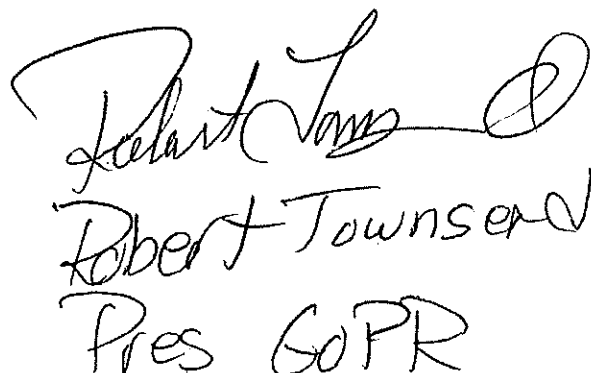 Robert Townsend
Robert Townsend
Pres GoPR